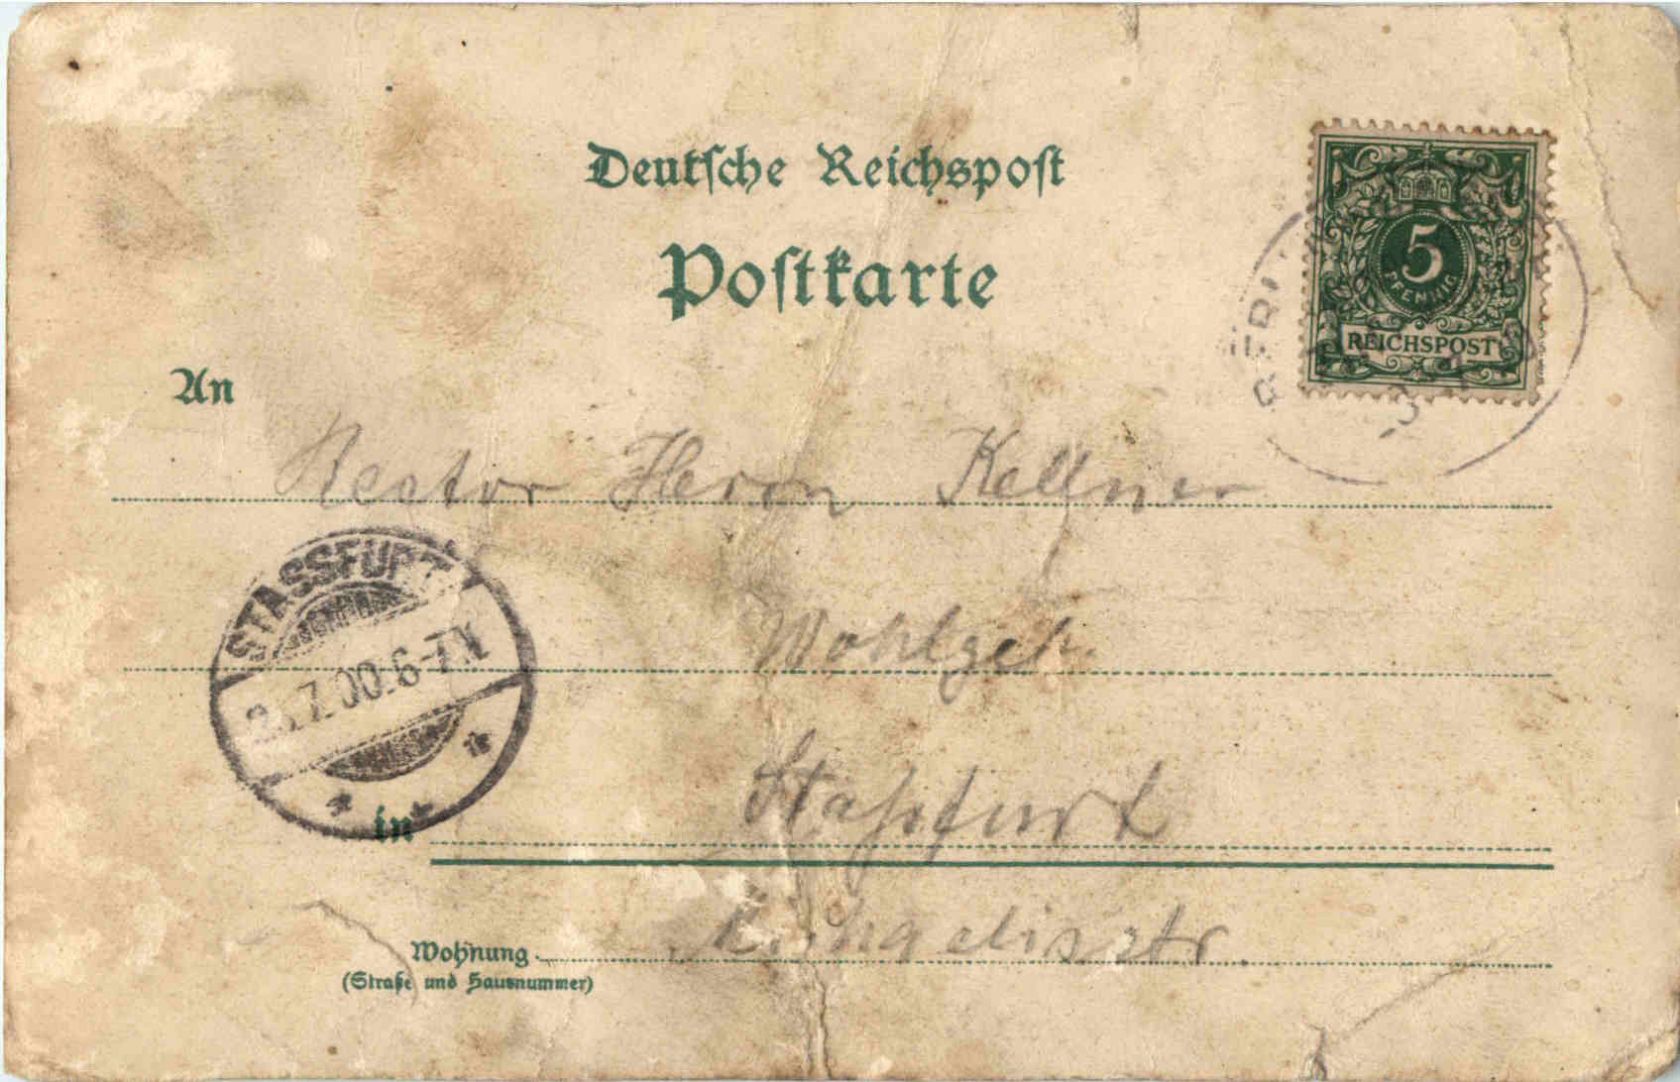 Deutsche Reichspost
Postkarte
5
PFENNIG
REICHSPOST
An
Rector Herrn Kellner
STASSFURT
.7.00.6-7N
Wohlgeb.
in Staßfurt
Wohnung
(Straße und Hausnummer)